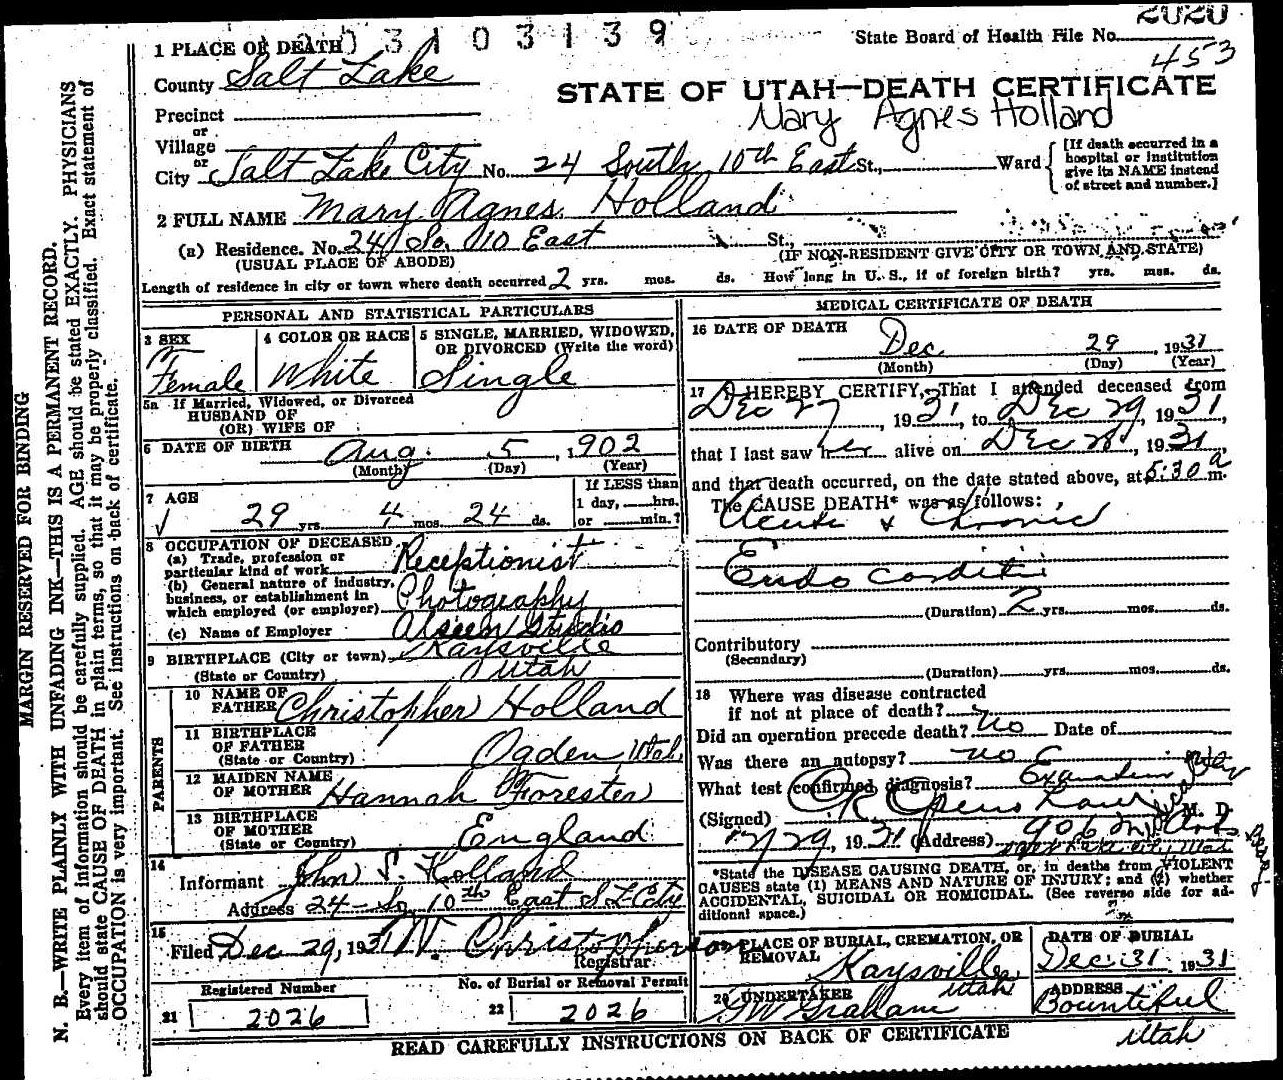 3 1 0 3 1 3 9
2020
State Board of Health File No.
453
1 PLACE OF DEATH
County Salt Lake
STATE OF UTAH—DEATH CERTIFICATE
Mary Agnes Holland
Precinct
or
Village
or
City Salt Lake City No. 24 South 10th East St., Ward
[If death occurred in a hospital or institution give its NAME instead of street and number.]
2 FULL NAME Mary Agnes Holland
(a) Residence. No. 24 So. 10 East St.,
(USUAL PLACE OF ABODE) (IF NON-RESIDENT GIVE CITY OR TOWN AND STATE)
Length of residence in city or town where death occurred 2 yrs. mos. ds. How long in U. S., if of foreign birth? yrs. mos. ds.
PERSONAL AND STATISTICAL PARTICULARS
3 SEX
Female
4 COLOR OR RACE
White
5 SINGLE, MARRIED, WIDOWED, OR DIVORCED (Write the word)
Single
5a If Married, Widowed, or Divorced
HUSBAND OF
(OR) WIFE OF
6 DATE OF BIRTH Aug. 5, 1902
(Month) (Day) (Year)
7 AGE
29 yrs. 4 mos. 24 ds.
If LESS than
1 day, hrs.
or min.?
8 OCCUPATION OF DECEASED
(a) Trade, profession or
particular kind of work Receptionist
(b) General nature of industry,
business, or establishment in
which employed (or employer) Photography
(c) Name of Employer Studio
9 BIRTHPLACE (City or town) Kaysville
(State or Country) Utah
PARENTS
10 NAME OF
FATHER Christopher Holland
11 BIRTHPLACE
OF FATHER
(State or Country) Ogden, Utah
12 MAIDEN NAME
OF MOTHER Hannah Forester
13 BIRTHPLACE
OF MOTHER
(State or Country) England
14
Informant John S. Holland
Address 24 - So 10th East S L City
15
Filed Dec 29, 1931 W. Christopherson
Registrar
Registered Number
21 2026
No. of Burial or Removal Permit
22 2026
MEDICAL CERTIFICATE OF DEATH
16 DATE OF DEATH
Dec. 29, 1931
(Month) (Day) (Year)
17 I HEREBY CERTIFY, That I attended deceased from
Dec 27, 1931, to Dec 29, 1931,
that I last saw her alive on Dec 28, 1931,
and that death occurred, on the date stated above, at 5:30 a m.
The CAUSE DEATH* was as follows:
Acute & Chronic
Endocarditis
(Duration) 2 yrs. mos. ds.
Contributory
(Secondary)
(Duration) yrs. mos. ds.
18 Where was disease contracted
if not at place of death?
Did an operation precede death? no Date of
Was there an autopsy? no
What test confirmed diagnosis?
(Signed) M. D.
12/29, 1931 (Address) 906
*State the DISEASE CAUSING DEATH, or, in deaths from VIOLENT CAUSES state (1) MEANS AND NATURE OF INJURY; and (2) whether ACCIDENTAL, SUICIDAL OR HOMICIDAL. (See reverse side for additional space.)
PLACE OF BURIAL, CREMATION, OR REMOVAL
Kaysville
Utah
DATE OF BURIAL
Dec. 31 1931
20 UNDERTAKER
Graham
ADDRESS
Bountiful
Utah
READ CAREFULLY INSTRUCTIONS ON BACK OF CERTIFICATE
MARGIN RESERVED FOR BINDING
N. B.—WRITE PLAINLY WITH UNFADING INK—THIS IS A PERMANENT RECORD.
Every item of information should be carefully supplied. AGE should be stated EXACTLY. PHYSICIANS
should state CAUSE OF DEATH in plain terms, so that it may be properly classified. Exact statement of
OCCUPATION is very important. See instructions on back of certificate.